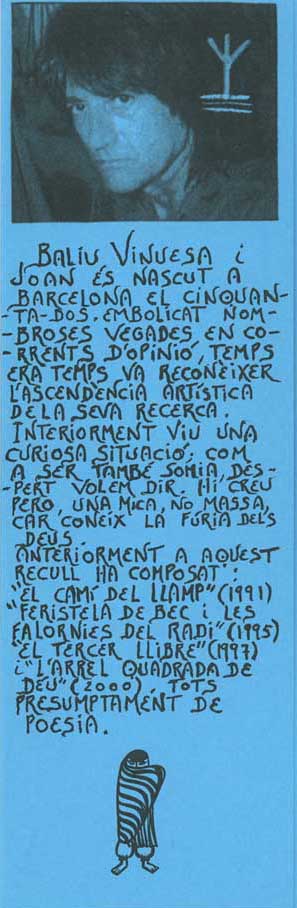 BALIU VINUESA i
JOAN ÉS NASCUT A
BARCELONA EL CINQUAN-
-TA-DOS. EMBOLICAT NOM-
-BROSES VEGADES EN CO-
-RRENTS D'OPINIÓ, TEMPS
ERA TEMPS VA RECONEIXER
L'ASCENDÈNCIA ARTÍSTICA
DE LA SEVA RECERCA.
INTERIORMENT VIU UNA
CURIOSA SITUACIÓ, COM
A SER TAMBÉ SOMIA, DES-
-PERT VOLEM DIR. HI CREU
PERÒ, UNA MICA, NO MASSA,
CAR CONEIX LA FÚRIA DELS
DEUS.
ANTERIORMENT A AQUEST
RECULL HA COMPOSAT:
"EL CAMÍ DEL LLAMP" (1991)
"FERISTELA DE BEC I LES
FALORNIES DEL RADI" (1995)
"EL TERCER LLIBRE" (1997)
i "L'ARREL QUADRADA DE
DÉU" (2000). TOTS
PRESUMPTAMENT DE
POESIA.